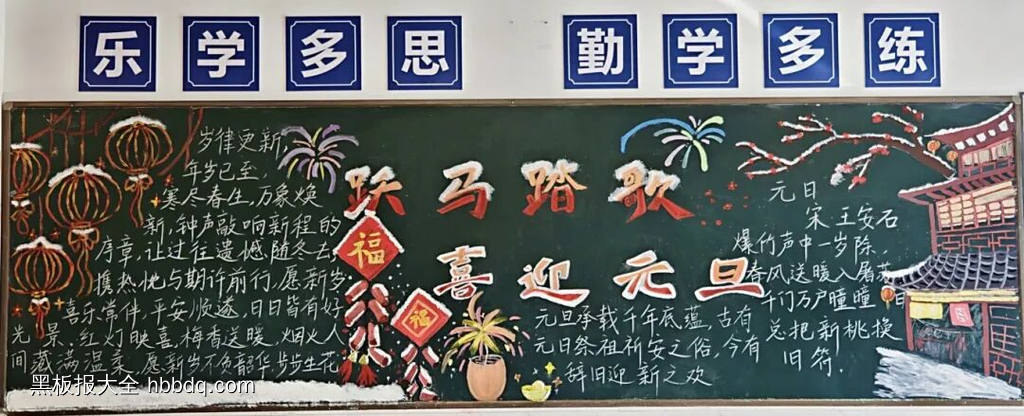 乐学多思 勤学多练
岁律更新,
年岁已至,
寒尽春生,万象焕
新,钟声敲响新程的
序章,让过往遗憾随冬去,
携热忱与期许前行,愿新岁
喜乐常伴,平安顺遂,日日皆有好
光景、红灯映喜,梅香送暖,烟火人
间藏满温柔,愿新岁不负韶华步步生花
跃马踏歌
喜迎元旦
福
福
元旦承载千年底蕴,古有
元旦祭祖祈安之俗,今有
辞旧迎新之欢
元日
宋 王安石
爆竹声中一岁除,
春风送暖入屠苏
千门万户曈曈日
总把新桃换
旧符.
黑板报大全 hbbdq.com